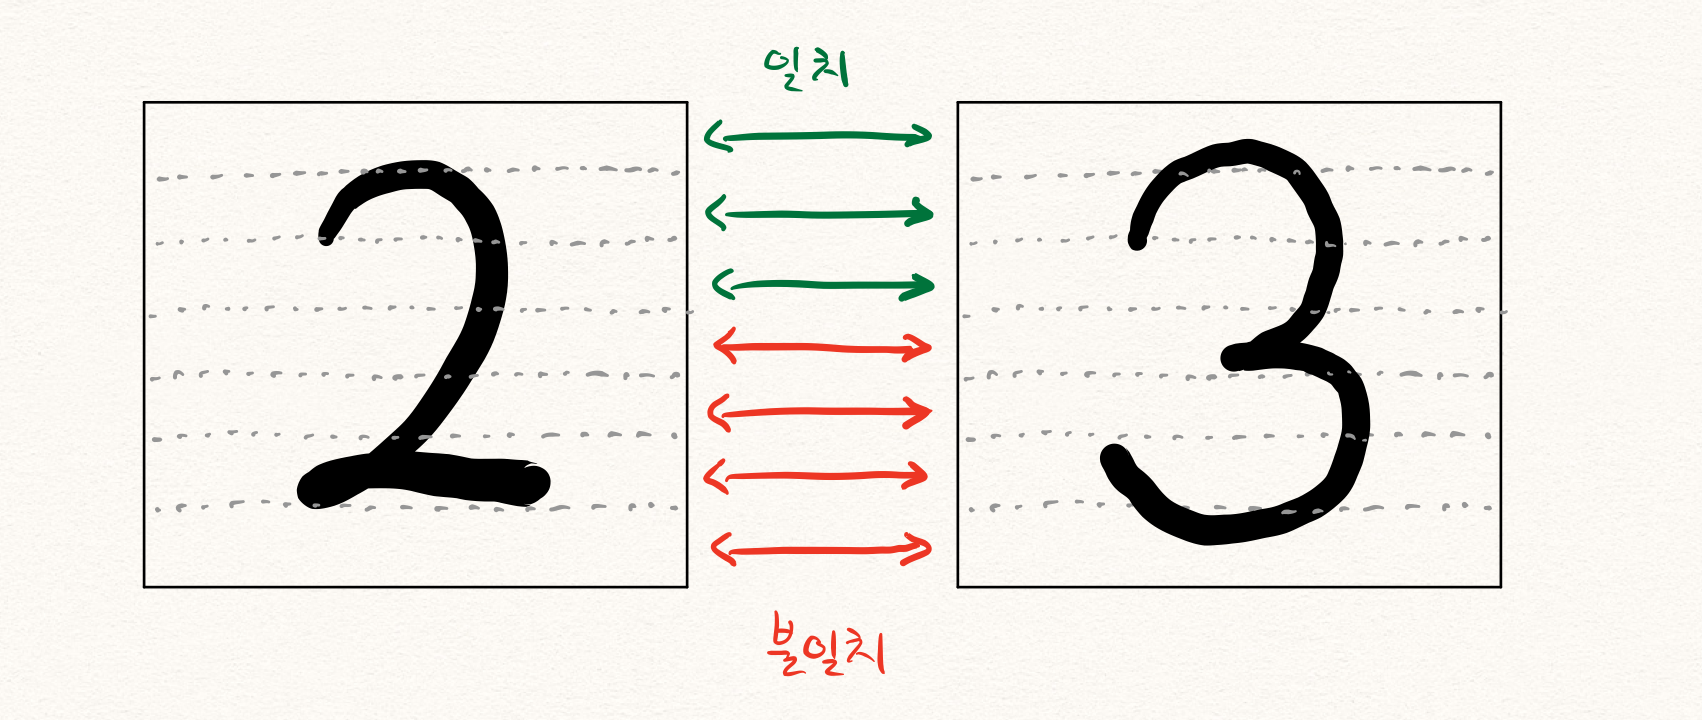 일치
2
3
불일치